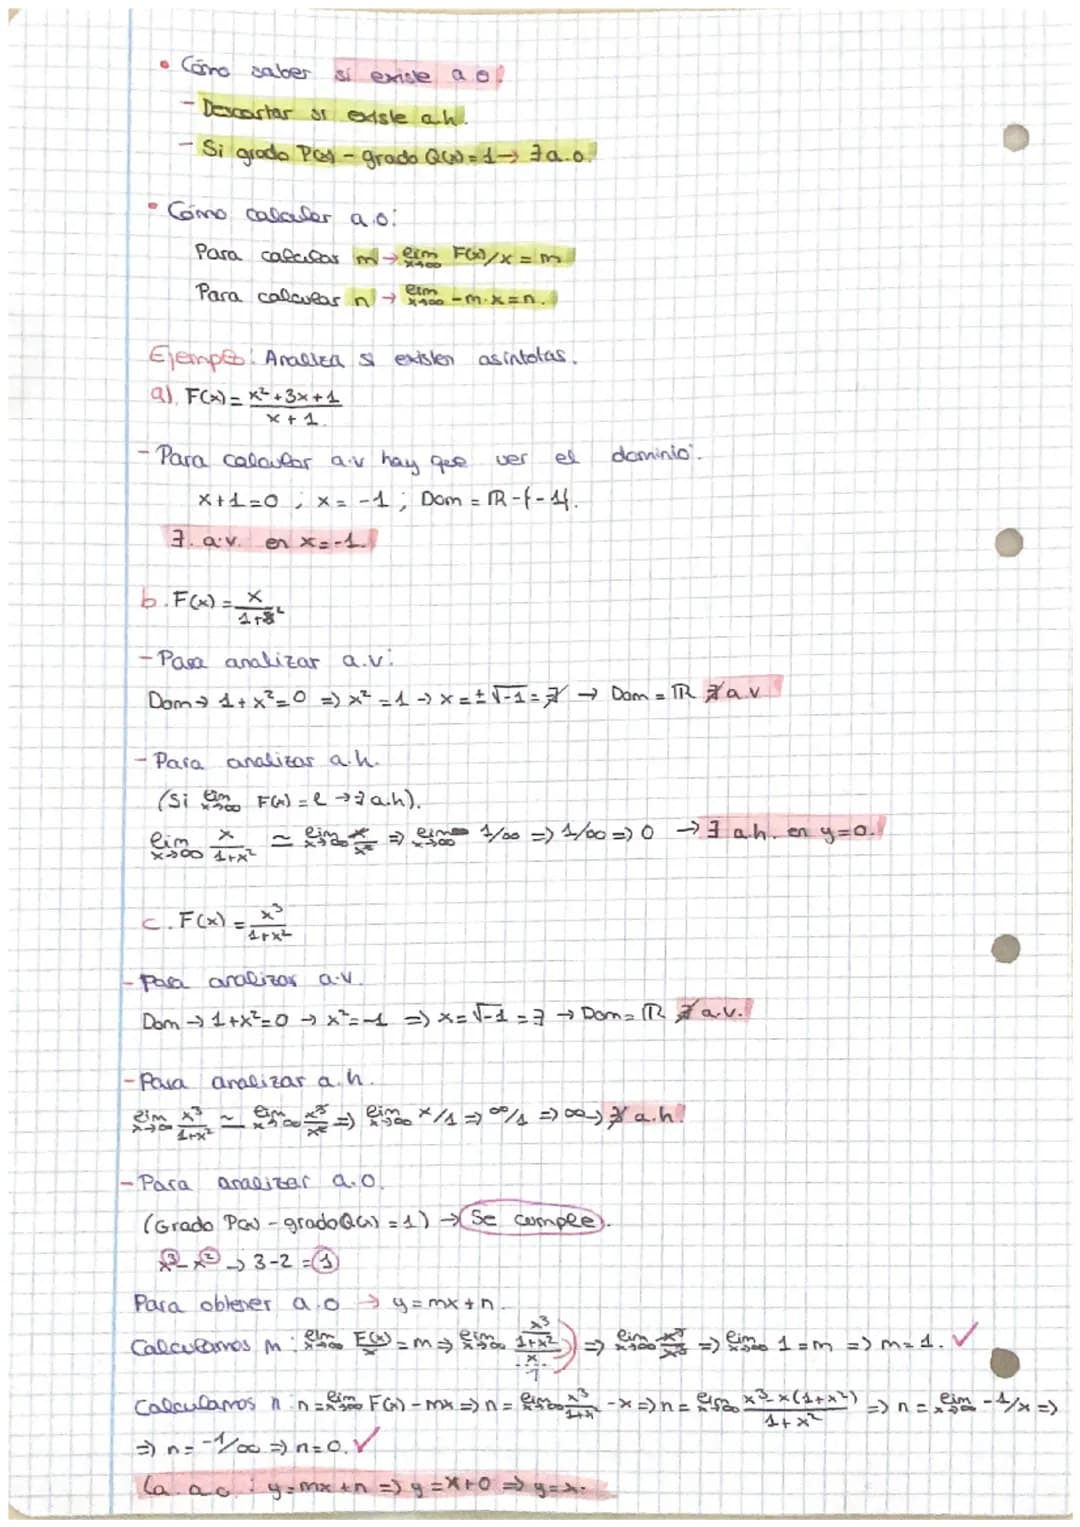 • Cómo saber si existe a.o:
- Descartar si existe a.h.
- Si grado P(x) - grado Q(x) = 1 → ∃ a.o.
• Cómo calcular a.o:
Para calcular m → lim x→∞ F(x)/x = m
Para calcular n → lim x→∞ -m·x = n.
Ejemplo: Analiza si existen asíntotas.
a). F(x) = x² + 3x + 1 / x + 1
- Para calcular a.v hay que ver el dominio:
x+1=0 ; x = -1 ; Dom = ℝ - {-1}.
∃. a.v. en x=-1.
b. F(x) = x / 1+x²
- Para analizar a.v:
Dom → 1+x²=0 => x² = 1 -> x = ±√-1 = ∄ → Dom = ℝ ∄ a.v
- Para analizar a.h.
(Si lim x→∞ F(x) = l → ∃ a.h).
lim x→∞ x / 1+x² ≃ lim x→∞ x / x² => lim x→∞ 1/∞ => 1/∞ => 0 → ∃ a.h. en y=0.
c. F(x) = x³ / 1+x²
- Para analizar a.v.
Dom → 1+x²=0 → x²=-1 => x=√-1 = ∃ → Dom = ℝ ∄ a.v.
- Para analizar a.h.
lim x→∞ x³ / 1+x² ≃ lim x→∞ x³ / x² => lim x→∞ x/1 => ∞/1 => ∞ → ∄ a.h.
- Para analizar a.o.
(Grado P(x) - grado Q(x) = 1) → Se cumple.
x³ - x² → 3-2 = 1
Para obtener a.o → y = mx + n.
Calculamos m: lim x→∞ F(x)/x = m => lim x→∞ x³ / 1+x² / x / 1 => lim x→∞ x³ / x³ => lim x→∞ 1 = m => m = 1. ✓
Calculamos n: n = lim x→∞ F(x) - mx => n = lim x→∞ x³ / 1+x - x => n = lim x→∞ x³ - x(1+x²) / 1+x² => n = lim x→∞ -1/x =>
=> n = -1/∞ => n = 0. ✓
La a.o : y = mx + n => y = x + 0 => y = x.